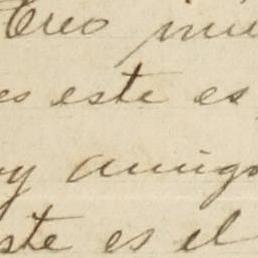 Creo
es este es
oy amigo
ste es el